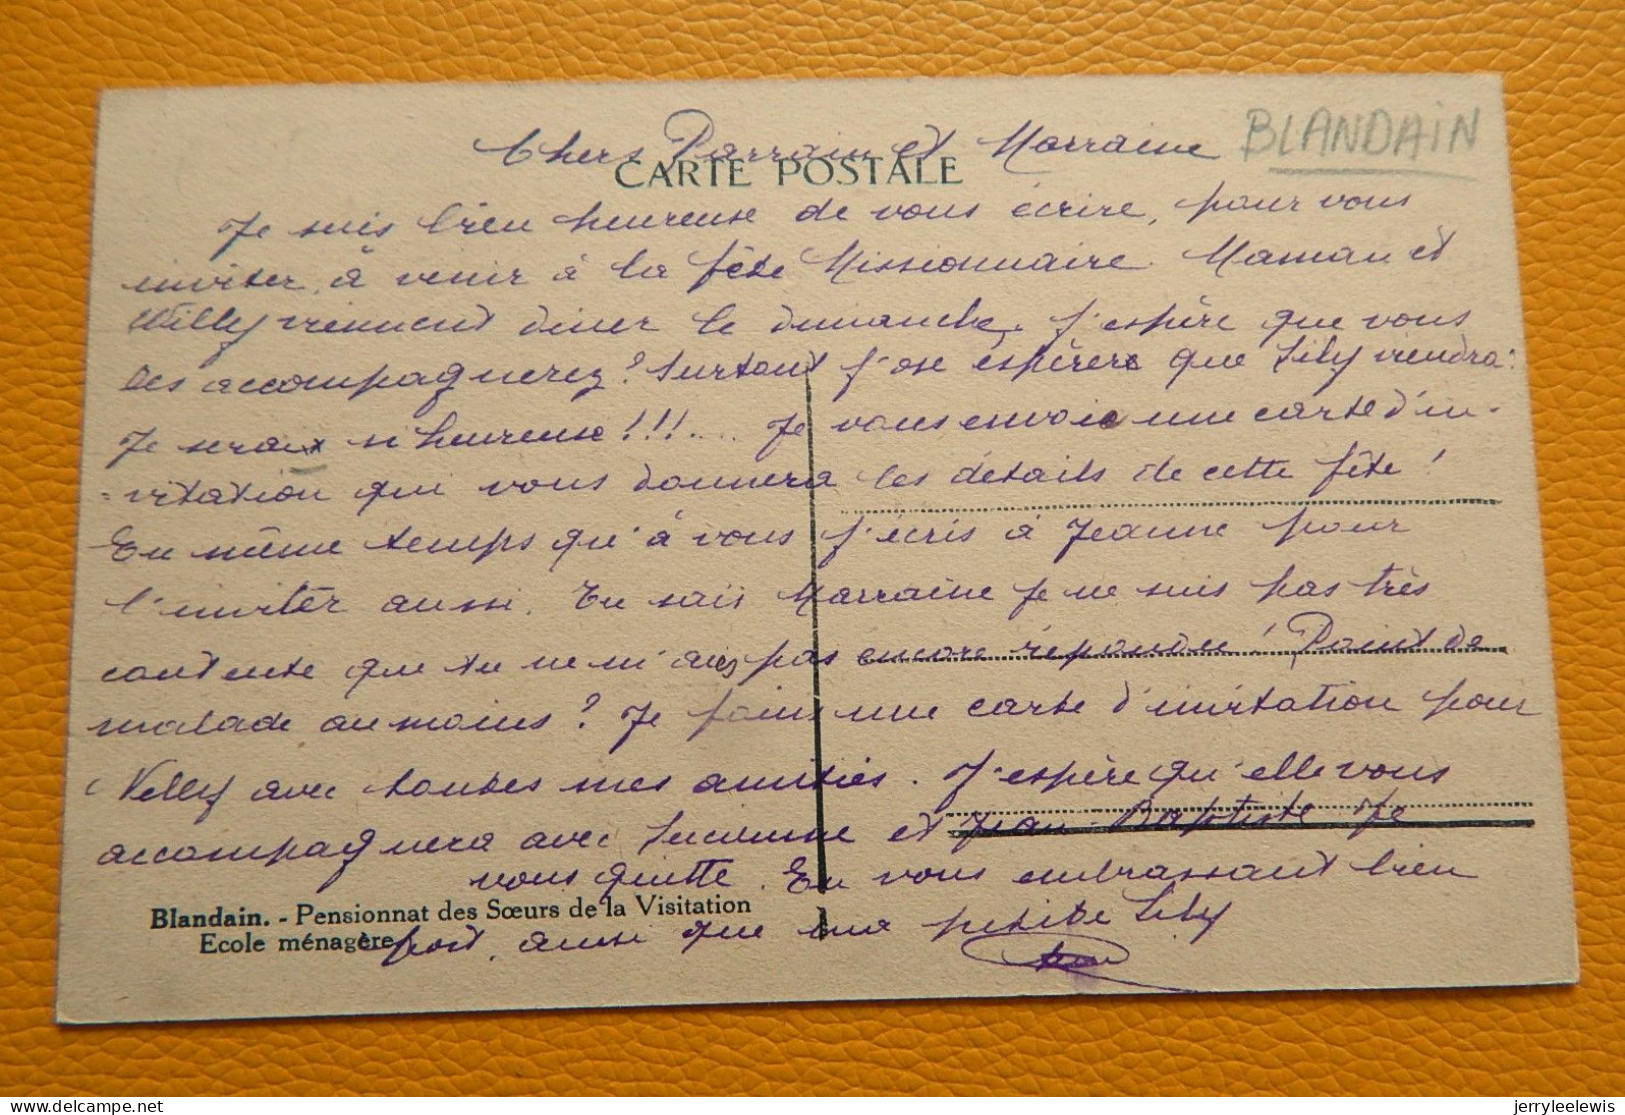 BLANDAIN
Chers Parrain et Marraine
CARTE POSTALE
Je suis bien heureuse de vous écrire, pour vous
inviter, à venir à la fête Missionnaire. Maman et
Willy viennent diner le dimanche. J'espère que vous
les accompagnerez? Surtout j'ose espérer que Lily viendra.
Je serai si heureuse!!!.... Je vous envoie une carte d'in-
-vitation qui vous donnera les détails de cette fête!
En même temps qu'à vous j'écris à Jeanne pour
l'inviter aussi. Tu sais Marraine je ne suis pas très
contente que tu ne m'aies pas encore répondu! Point de
malade au moins? Je joins une carte d'invitation pour
Nelly avec toutes mes amitiés. J'espère qu'elle vous
accompagnera avec Lucienne et Jean-Baptiste Je
vous quitte. En vous embrassant bien
Blandain. - Pensionnat des Sœurs de la Visitation
Ecole ménagère
fort, ainsi que ma petite Lily
jerryleelewis